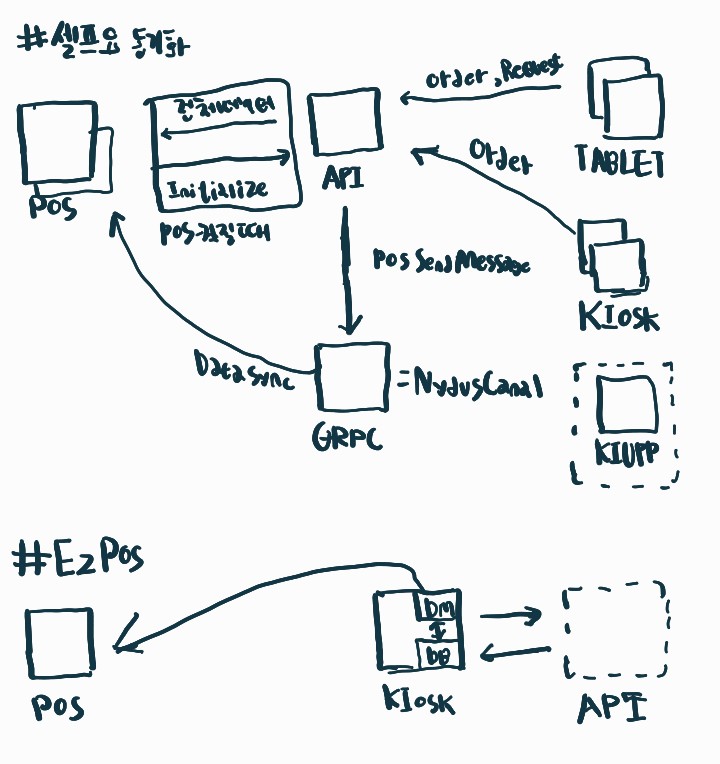 #셀프용 동기화
전체데이터
Initialize
POS
POS켜질때
API
order, Request
TABLET
Order
KIosk
POS Send Message
Data Sync
=NydusCanal
GRPC
KIUPP
#EzPos
POS
DM
DB
KIosk
API